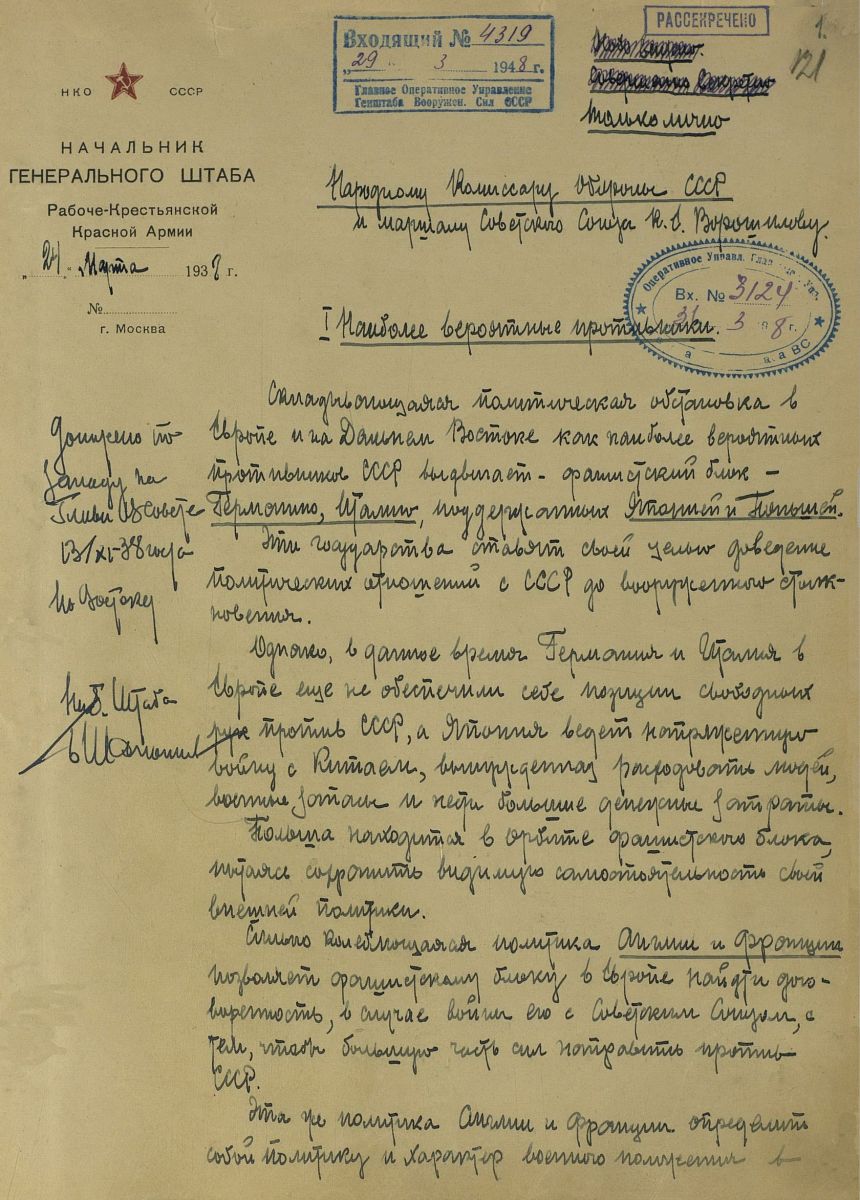 РАССЕКРЕЧЕНО
1.
121
Входящий № 4319
„29" 3 1948 г.
Главное Оперативное Управление
Генштаба Вооружен. Сил СССР
только лично
НКО СССР
НАЧАЛЬНИК
ГЕНЕРАЛЬНОГО ШТАБА
Рабоче-Крестьянской
Красной Армии
„24" Марта 1938 г.
№
г. Москва
Народному Комиссару Обороны СССР
и маршалу Советского Союза К. Е. Ворошилову.
Оперативное Управл.
Вх. № 3124
31 3 8 г.
I Наиболее вероятные противники.
Складывающаяся политическая обстановка в
Европе и на Дальнем Востоке как наиболее вероятных
противников СССР выдвигает - фашистский блок -
Германию, Италию, поддержанных Японией и Польшей.
Эти государства ставят своей целью доведение
политических отношений с СССР до вооруженного столк-
новения.
Однако, в данное время Германия и Италия в
Европе еще не обеспечили себе позиции свободных
рук против СССР, а Япония ведет напряженную
войну с Китаем, вынужденная расходовать людей,
военные запасы и нести большие денежные затраты.
Польша находится в орбите фашистского блока,
пытаясь сохранить видимую самостоятельность своей
внешней политики.
Сильно колеблющаяся политика Англии и Франции
позволяет фашистскому блоку в Европе найти дого-
воренность, в случае войны его с Советским Союзом, с
тем, чтобы большую часть сил направить против
СССР.
Эта же политика Англии и Франции определит
собой политику и характер военного положения в
Доложено по
Западу на
Главн В Совете
13/XI-38 года
по Востоку
Нач. Г. Штаба
Б Шапошн